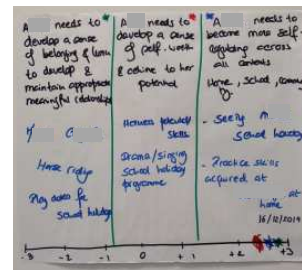 A needs to
develop a sense
of belonging &
to develop &
maintain appropriate
meaningful relationships
Horse riding
Play dates for
school holidays
A needs to
develop a sense
of self-worth
& achieve to her
potential
skills
Drama/singing
school holiday
programme
A needs to
become more self-
regulating across
all contexts
Home, school,
school holiday
- Practice skills
acquired at
home
16/12/2019
-3 -2 -1 0 +1 +2 +3